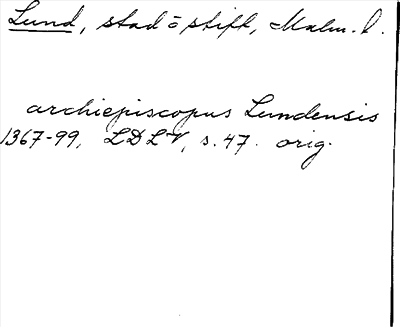 Lund, stad o stift, Malm. l.
archiepiscopus Lundensis
1367-99, LDLV, s. 47. orig.